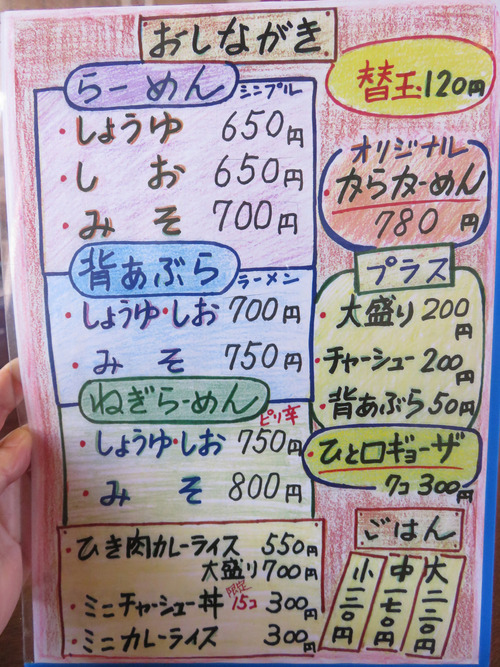 おしながき
らーめん シンプル
・しょうゆ 650円
・しお 650円
・みそ 700円
背あぶら ラーメン
・しょうゆ・しお 700円
・みそ 750円
ねぎらーめん ピリ辛
・しょうゆ・しお 750円
・みそ 800円
・ひき肉カレーライス 550円
大盛り700円
・ミニチャーシュー丼 限定15コ 300円
・ミニカレーライス 300円
替玉・120円
オリジナル
カらカーめん
780円
プラス
・大盛り200円
・チャーシュー200円
・背あぶら50円
・ひと口ギョーザ
7コ300円
ごはん
大二二〇円
中一七〇円
小一二〇円